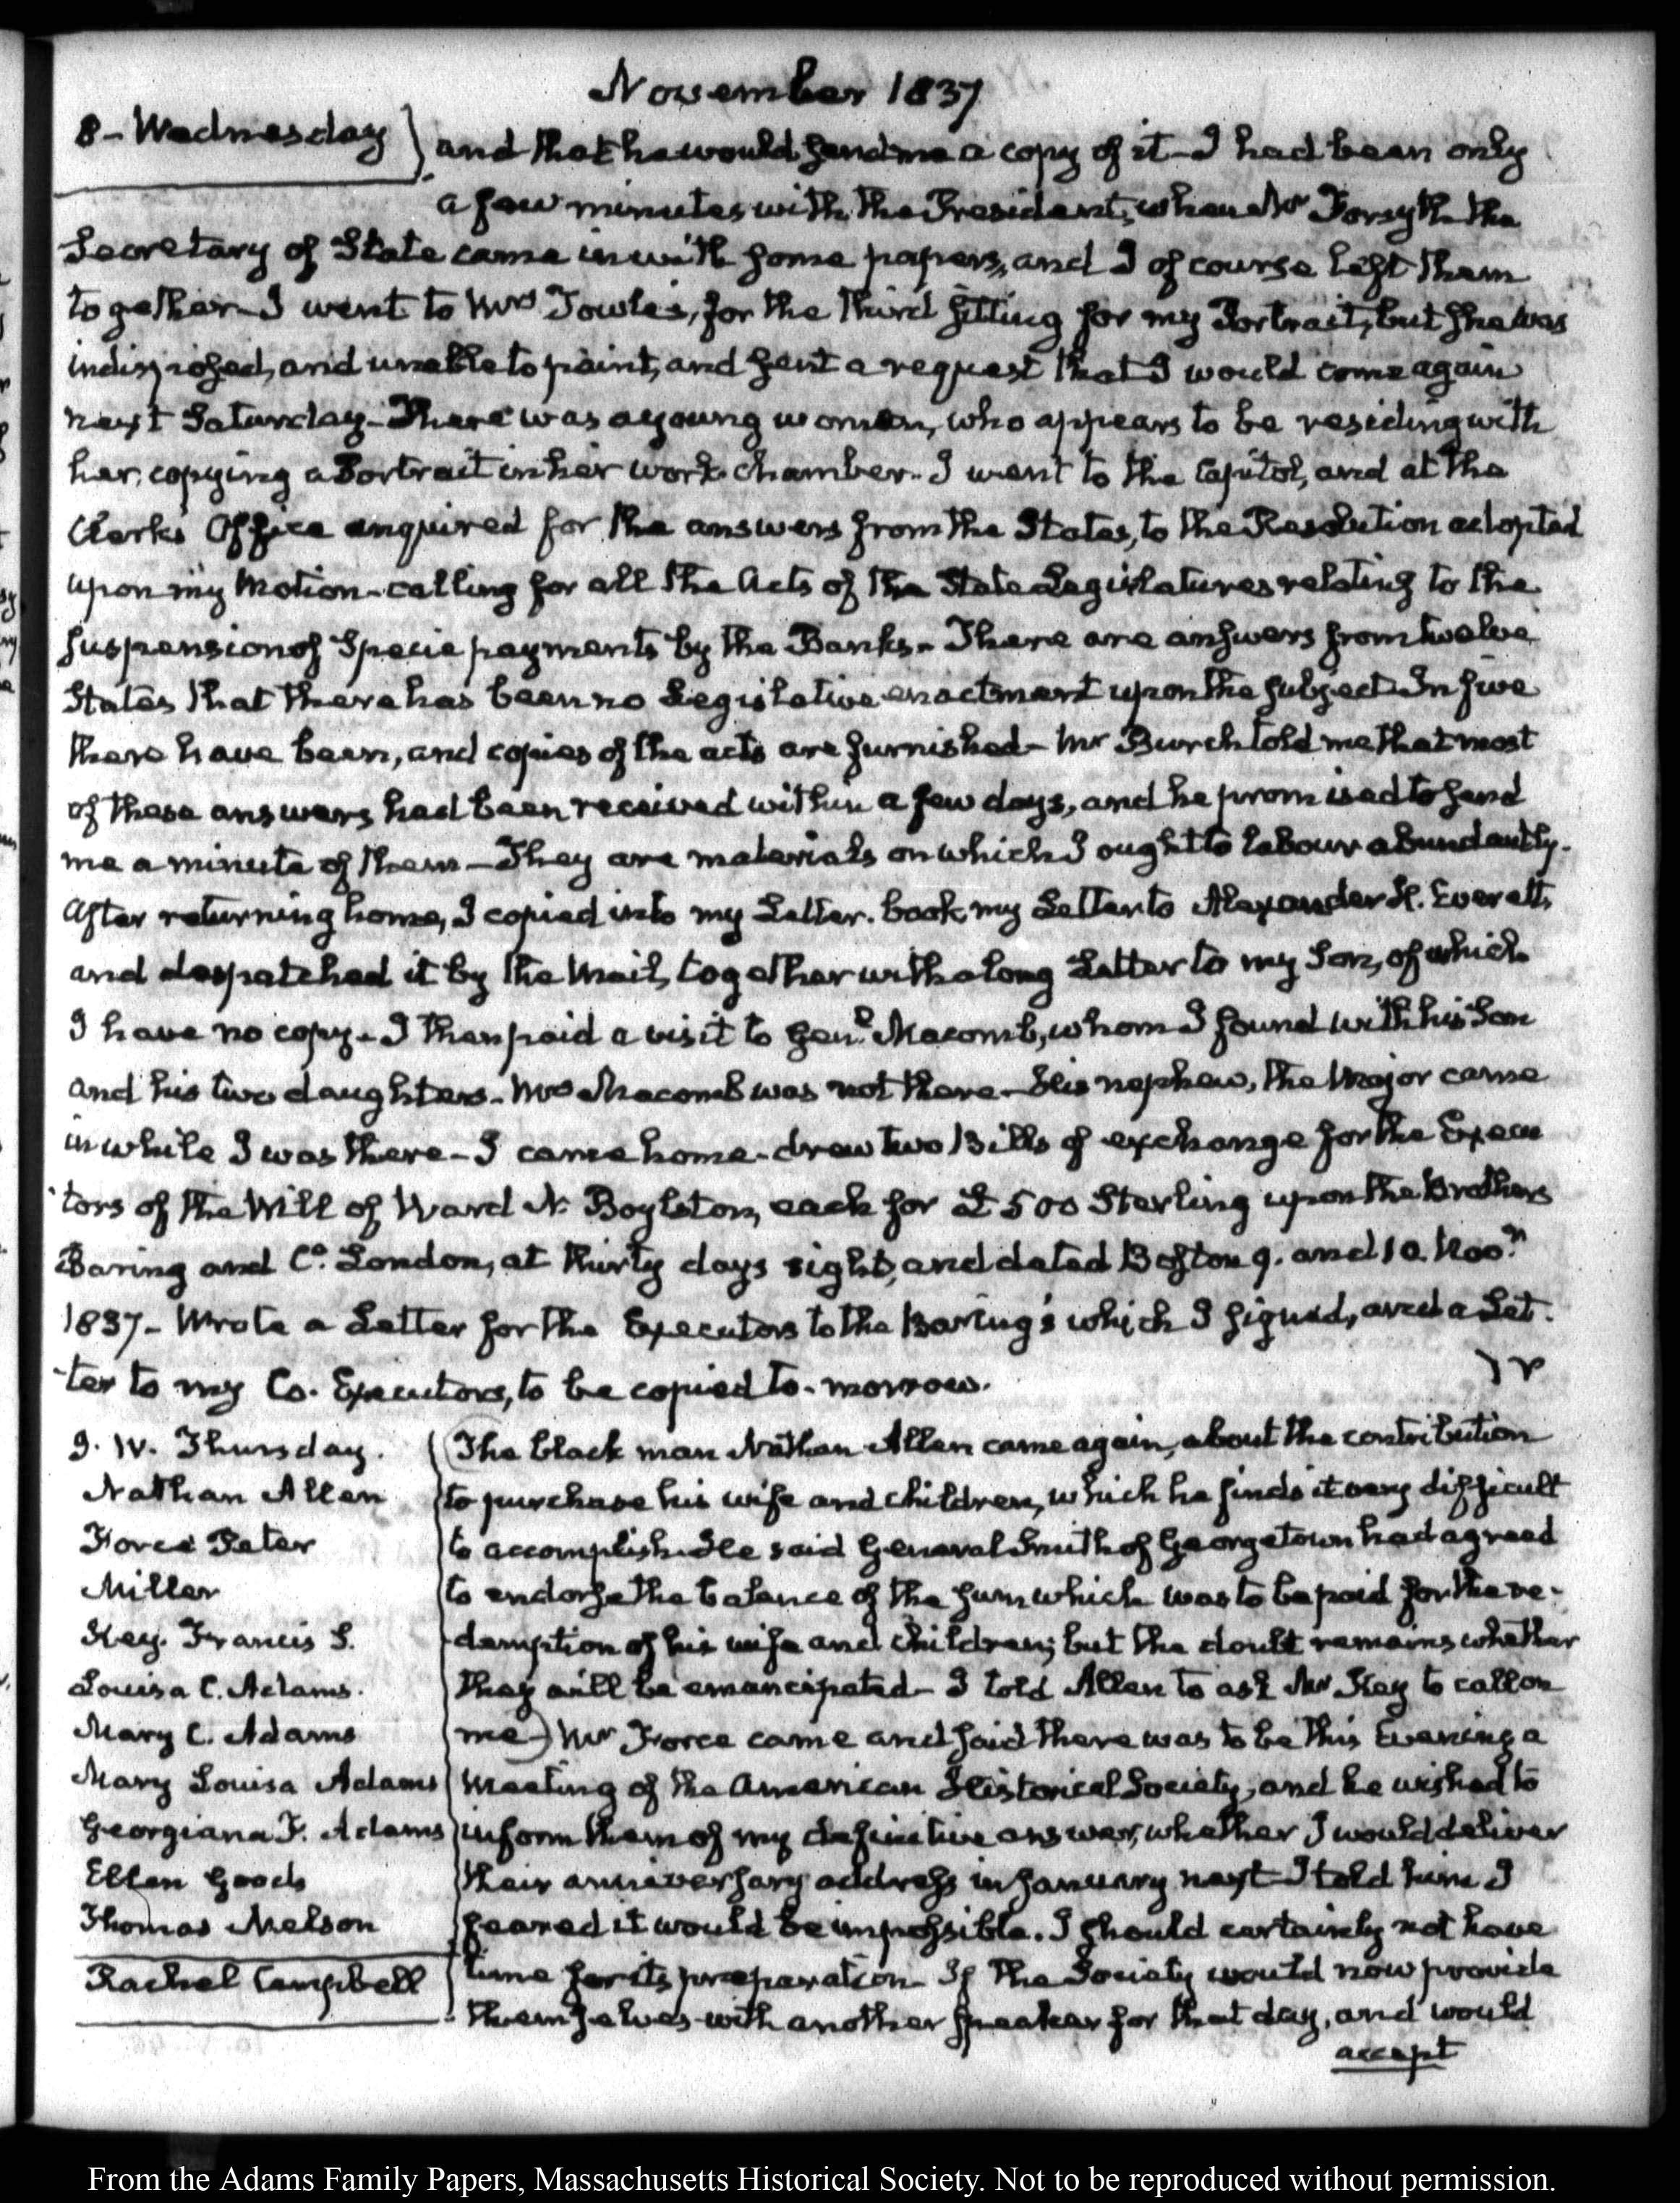 November 1837
8 - Wednesday
and that he would send me a copy of it - I had been only
a few minutes with the President, when Mr Forsyth the
Secretary of State came in with some papers, and I of course left them
together - I went to Mrs Towle's, for the third sitting for my Portrait, but she was
indisposed, and unable to paint, and sent a request that I would come again
next Saturday - There was a young woman, who appears to be residing with
her, copying a Portrait in her work-chamber. I went to the Capitol, and at the
Clerk's Office enquired for the answers from the States, to the Resolution adopted
upon my Motion - calling for all the Acts of the State Legislatures relating to the
suspension of Specie payments by the Banks - There are answers from twelve
States that there has been no Legislative enactment upon the subject. In five
there have been, and copies of the acts are furnished - Mr Burch told me that most
of these answers had been received within a few days, and he promised to send
me a minute of them - They are materials on which I ought to labour abundantly.
After returning home, I copied into my Letter-book, my Letter to Alexander H. Everett,
and despatched it by the Mail, together with a long Letter to my Son, of which
I have no copy - I then paid a visit to Genl Macomb, whom I found with his Son
and his two daughters - Mrs Macomb was not there - His nephew, the Major came
in while I was there - I came home - drew two Bills of exchange for the Execu
tors of the Will of Ward N. Boylston, each for £500 Sterling upon the Brothers
Baring and Co. London, at thirty days sight, and dated Boston 9. and 10. Novr
1837 - Wrote a Letter for the Executors to the Baring's which I signed, and a Let-
-ter to my Co-Executors, to be copied to-morrow.
9. IV. Thursday.
Nathan Allen
Force Peter
Miller
Key. Francis S.
Louisa C. Adams.
Mary C. Adams
Mary Louisa Adams
Georgiana F. Adams
Ellen Gooch
Thomas Nelson
Rachel Campbell
(The black man Nathan Allen came again, about the contribution
to purchase his wife and children, which he finds it very difficult
to accomplish. He said General Smith of Georgetown had agreed
to endorse the balance of the sum which was to be paid for the re-
-demption of his wife and children; but the doubt remains whether
they will be emancipated - I told Allen to ask Mr Key to call on
me) Mr Force came and said there was to be this Evening a
Meeting of the American Historical Society, and he wished to
inform them of my definitive answer, whether I would deliver
their anniversary address in January next - I told him I
feared it would be impossible. I should certainly not have
time for its preparation - If the Society would now provide
themselves with another speaker for that day, and would
accept
From the Adams Family Papers, Massachusetts Historical Society. Not to be reproduced without permission.